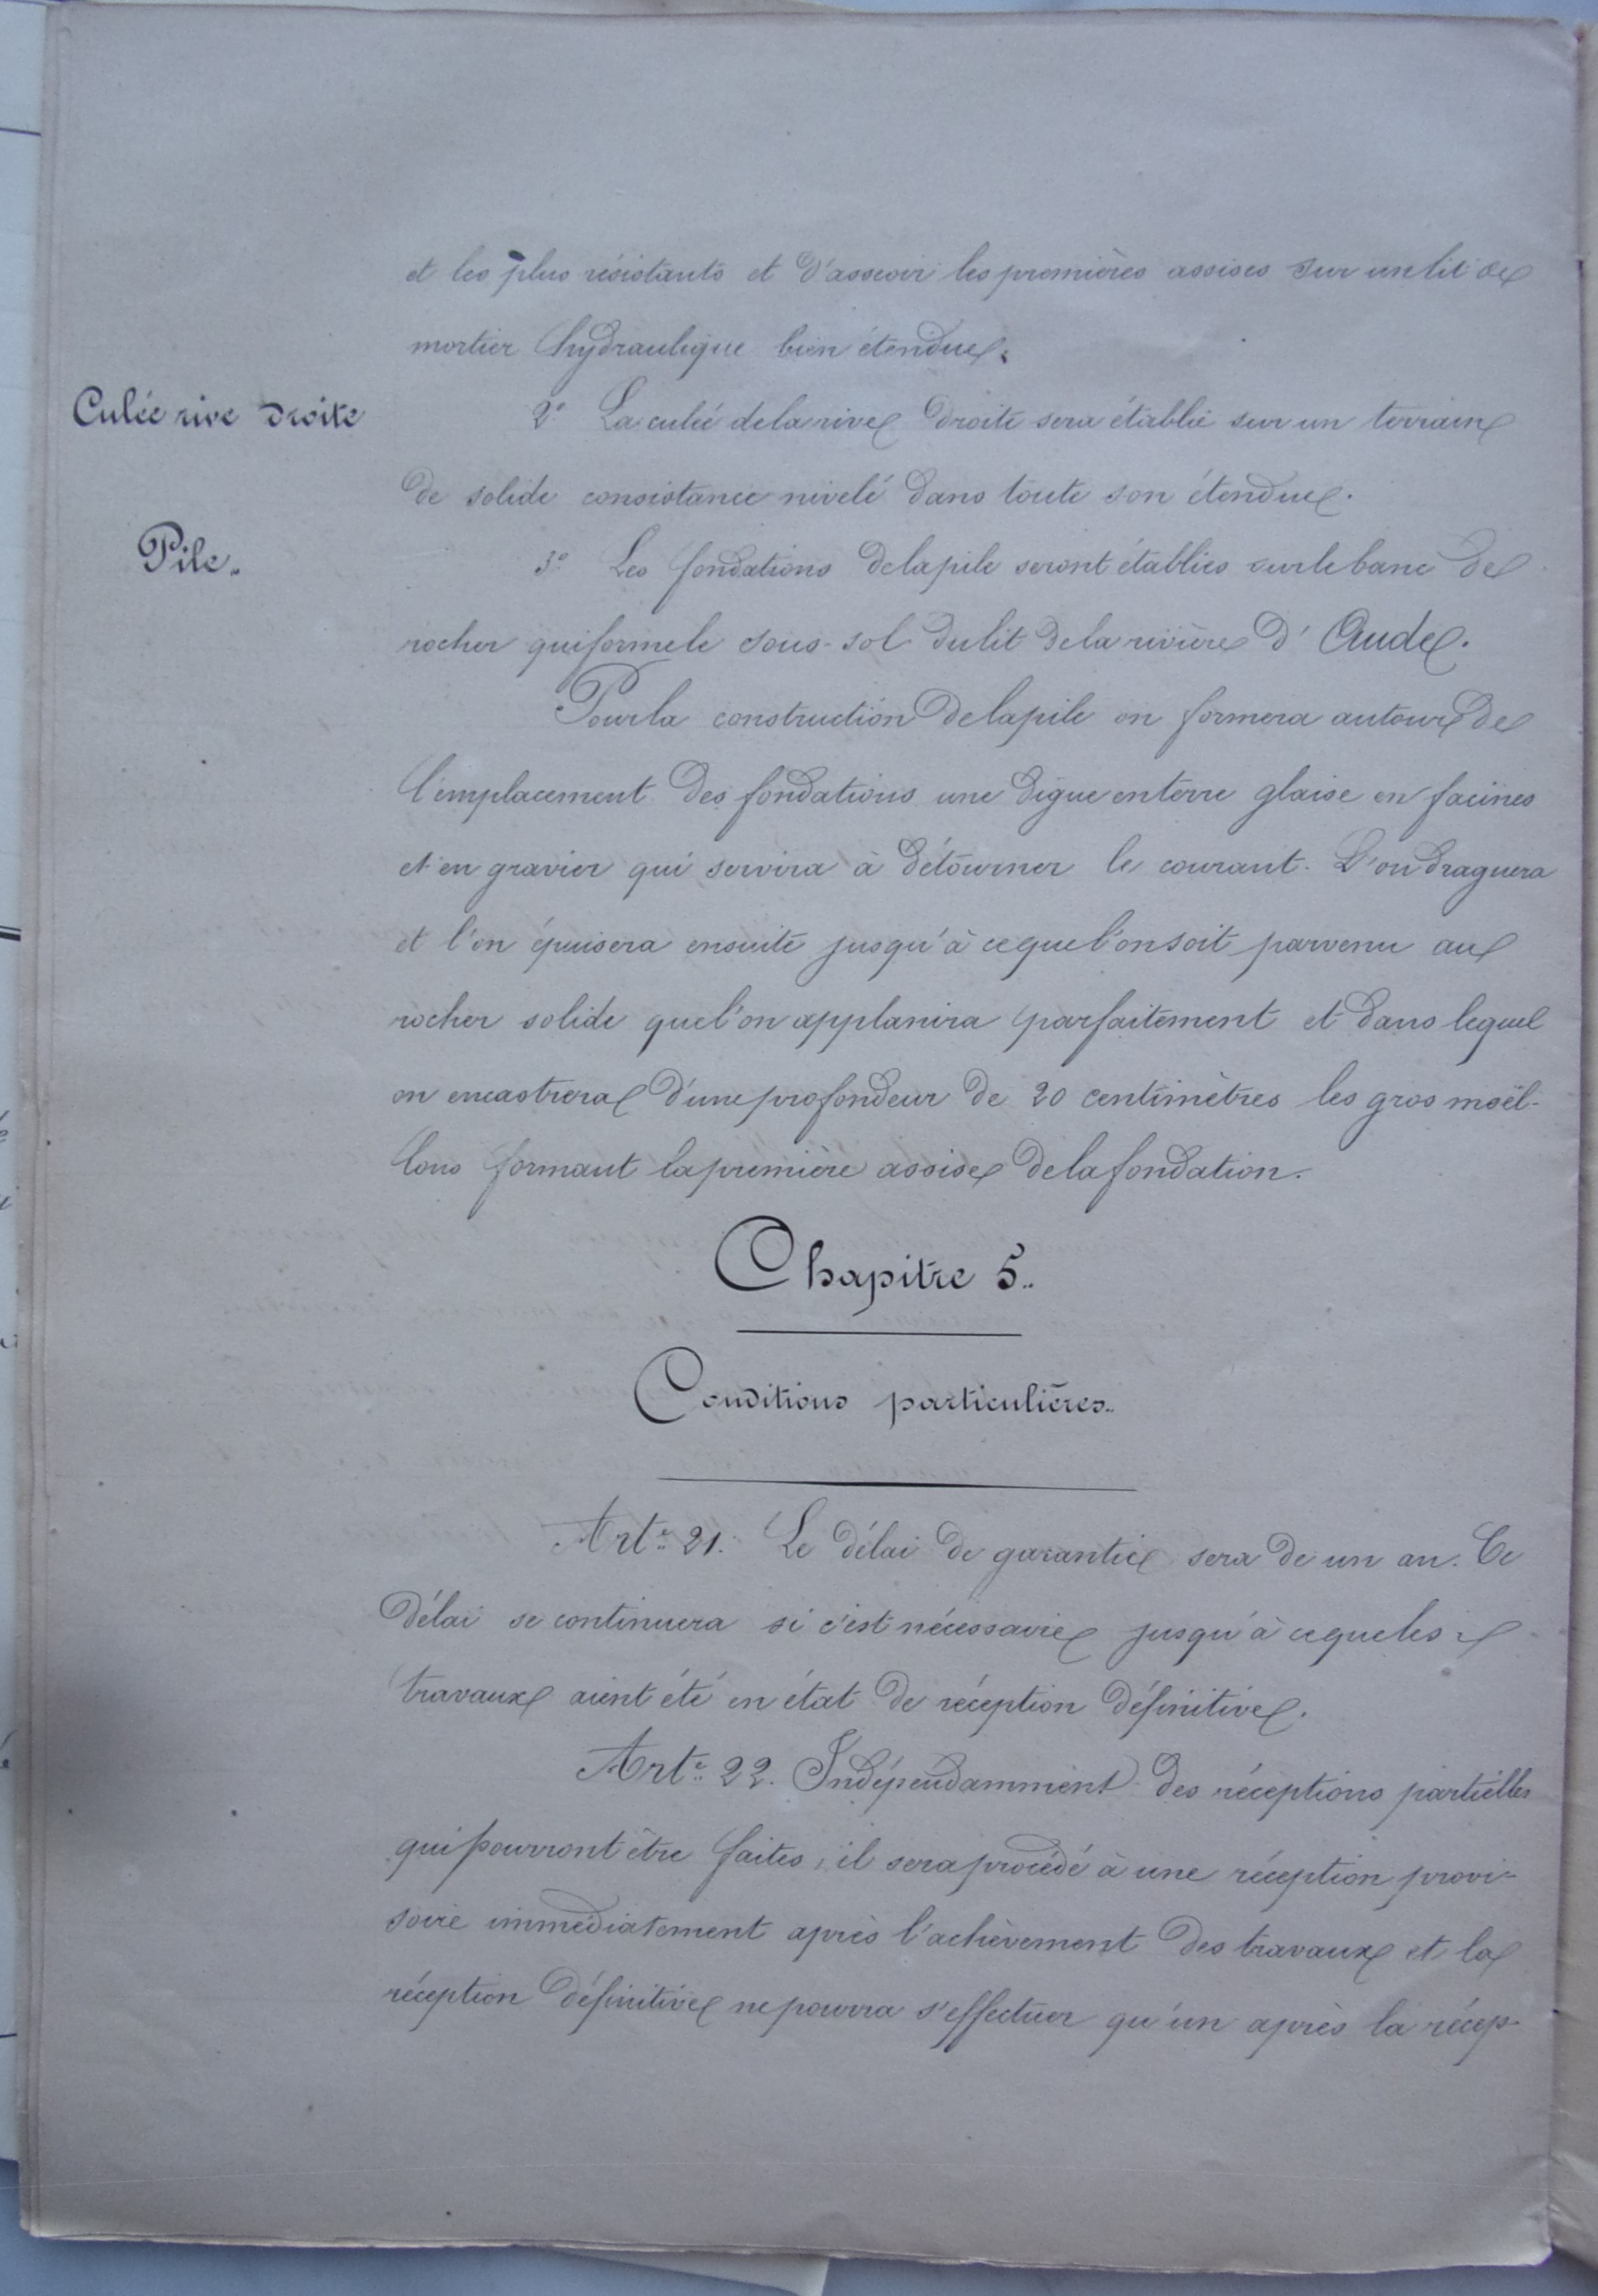 et les plus résistants et d'asseoir les premières assises sur un lit de
mortier hydraulique bien étendue.
Culée rive droite
2° La culée de la rive droite sera établie sur un terrain
de solide consistance nivelé dans toute son étendue.
Pile.
3° Les fondations de la pile seront établies sur le banc de
rocher qui forme le sous-sol du lit de la rivière d'Aude.
Pour la construction de la pile on formera autour de
l'emplacement des fondations une digue en terre glaise en facines
et en gravier qui servira à détourner le courant. L'on draguera
et l'on épuisera ensuite jusqu'à ce que l'on soit parvenu au
rocher solide que l'on applanira parfaitement et dans lequel
on encastrera d'une profondeur de 20 centimètres les gros moël-
lons formant la première assise de la fondation.
Chapitre 5..
Conditions particulières..
Art.e 21. Le délai de garantie sera de un an. Ce
délai se continuera si c'est nécessaire jusqu'à ce que les
travaux aient été en état de réception définitive.
Art.e 22. Indépendamment des réceptions partielles
qui pourront être faites, il sera procédé à une réception provi-
soire immédiatement après l'achèvement des travaux et la
réception définitive ne pourra s'effectuer qu'un après la récep-